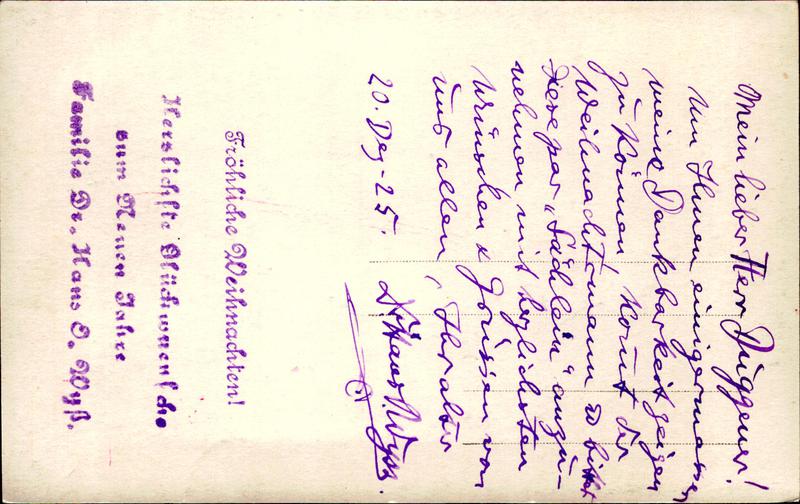 Mein lieber Herr Düggener!
Um Ihnen einigermassen
meine Dankbarkeit zeigen
zu können kommt der
Weihnachtsmann & bittet
diese par „Sächlein“ anzu-
nehmen mit herzlichsten
Wünschen & Grüssen von
uns allen, Ihr alter
20. Dez - 25. Dr. Hans O. Wyss.
Fröhliche Weihnachten!
Herzlichste Glückwuensche
zum Neuen Jahre
Familie Dr. Hans O. Wyß.